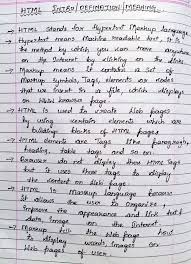 HTML INTRO/DEFINITION/MEANING
→ HTML Stands for Hypertext Markup Language
Hypertext means Machine readable text, It is
the method by which you can move anywhere
on the Internet by clicking on the links
→ Markup means It contains a Set of
Markup Symbols, Tags, elements and codes
that we insert in a file, which displays
on Web browser page.
→ HTML is used to create Web pages
by using certain elements which are
building blocks of HTML pages
→ HTML elements are Tags like Paragraphs,
Heading, table Tags and so on.
→ Browser do not display these HTML Tags
but it uses those tags to display
the content on Web page
→ HTML is Markup Language because
It allows the user to Organize,
Improve the appearance and link text &
data, Image on the Internet
→ Markup tell the Web page how
to display words, images on
Web pages of user.